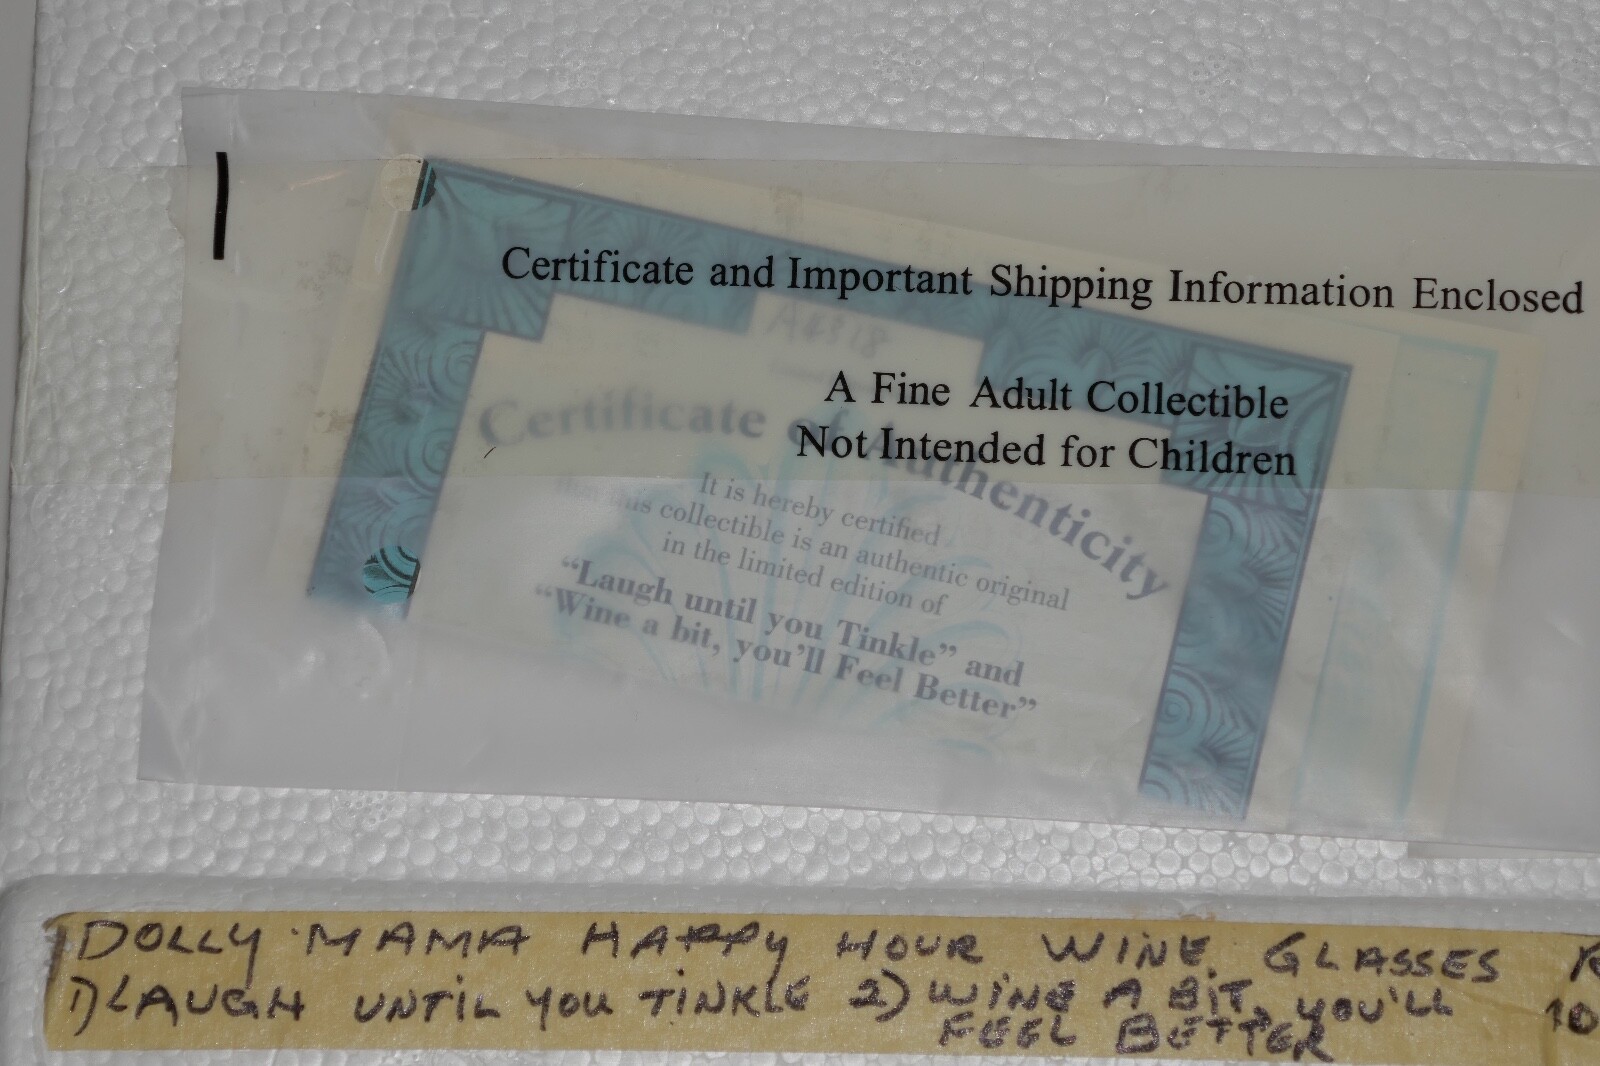 Certificate and Important Shipping Information Enclosed
A Fine Adult Collectible
Not Intended for Children
Certificate of Authenticity
It is hereby certified
that this collectible is an authentic original
in the limited edition of
“Laugh until you Tinkle” and
“Wine a bit, you’ll Feel Better”
DOLLY MAMA HAPPY HOUR WINE GLASSES
1) LAUGH UNTIL YOU TINKLE 2) WINE A BIT, YOU'LL
FEEL BETTER